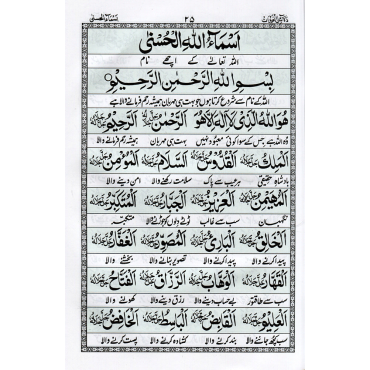 ۲۵
اَسْمَاءُ اللهِ الْحُسْنٰى
اللہ تعالٰی کے اچھے نام
بِسْمِ اللهِ الرَّحْمٰنِ الرَّحِيْمِ
اللہ کے نام سے شروع کرتا ہوں جو بہت ہی مہربان ہمیشہ رحم فرمانے والا ہے
هُوَ اللهُ الَّذِيْ لَا اِلٰهَ اِلَّا هُوَ الرَّحْمٰنُ جل جلالہ الرَّحِيْمُ جل جلالہ
وہ اللہ ہے جس کے سوا کوئی معبود نہیں بہت ہی مہربان ہمیشہ رحم فرمانے والا
اَلْمَلِكُ جل جلالہ الْقُدُّوْسُ جل جلالہ السَّلَامُ جل جلالہ الْمُؤْمِنُ جل جلالہ
بادشاہ حقیقی ہر عیب سے پاک سلامت رکھنے والا امن دینے والا
الْمُهَيْمِنُ جل جلالہ الْعَزِيْزُ جل جلالہ الْجَبَّارُ جل جلالہ الْمُتَكَبِّرُ جل جلالہ
نگہبان سب سے غالب ٹوٹے دلوں کو جوڑنے والا متکبر
اَلْخَالِقُ جل جلالہ الْبَارِئُ جل جلالہ الْمُصَوِّرُ جل جلالہ الْغَفَّارُ جل جلالہ
پیدا کرنے والا پیدا کرنے والا تصویر بنانے والا بخشنے والا
اَلْقَهَّارُ جل جلالہ الْوَهَّابُ جل جلالہ الرَّزَّاقُ جل جلالہ الْفَتَّاحُ جل جلالہ
سب سے طاقتور بے حساب دینے والا رزق دینے والا کھولنے والا
اَلْعَلِيْمُ جل جلالہ الْقَابِضُ جل جلالہ الْبَاسِطُ جل جلالہ الْخَافِضُ جل جلالہ
سب کچھ جاننے والا بند کرنے والا کشادہ کرنے والا پست کرنے والا